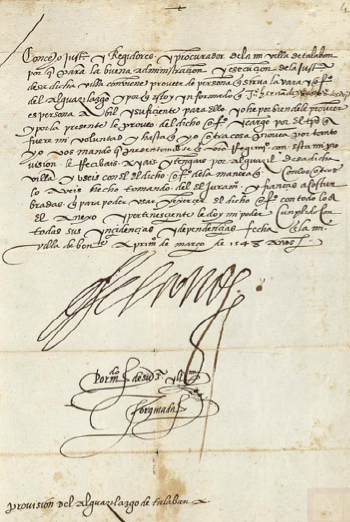 Concejo Justª y Regidores y procurador de la mi villa de talaban
por q̃ para la buena administracion y execucion de la Justª
desa dicha villa conviene proveer de persona q̃ sirva la vara y offº
del Alguazilazgo y por q̃ soy informado q̃ Juº hernandez
es persona Abil y suficiente para ello y he por bien de le proveer
y por la presente le proveo del dicho offº y cargo por el tpo q̃
fuere mi voluntad y hasta q̃ yo otra cosa provea por tanto
yo vos mando q̃ presentandose en vro Regimº con esta mi pro
vision le Recibais y ayais y tengais por alguazil desa dicha
villa y useis con el el dicho offº de la manera q̃ con los otros
lo aveis hecho tomando del el Juramº y fianças acostum
bradas q̃ para poder usar y exercer el dicho offº con todo lo a
el Anexo y perteneciente le doy mi poder cumplido con
todas sus yncidencias y dependencias fecha en la mi
villa de benᵗᵉ A primº de março de 1548 Años
Por mdº de su sª yllª
provision del alguazilazgo de talaban